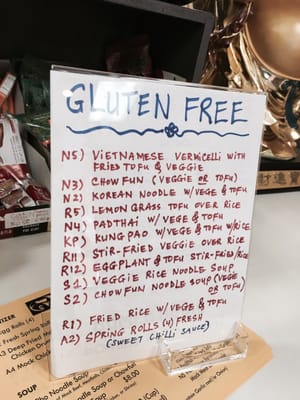 GLUTEN FREE
N5) VIETNAMESE VERMICELLI WITH
FRIED TOFU & VEGGIE
N3) CHOW FUN (VEGGIE OR TOFU)
N2) KOREAN NOODLE W/VEGE & TOFU
R5) LEMON GRASS TOFU OVER RICE
N4) PADTHAI W/ VEGE & TOFU
KP) KUNG PAO W/ VEGE & TOFU W/RICE
R11) STIR-FRIED VEGGIE OVER RICE
R12) EGGPLANT & TOFU STIR-FRIED/RICE
S1) VEGGIE RICE NOODLE SOUP
S2) CHOW FUN NOODLE SOUP (VEGE
OR TOFU)
R1) FRIED RICE W/VEGE & TOFU
A2) SPRING ROLLS (4) FRESH
(SWEET CHILLI SAUCE)
Egg Rolls (4)
Fresh Spring
Deep Fried
Chicken
A4 Mock Chicken
SOUP
Noodle Soup
$8.00